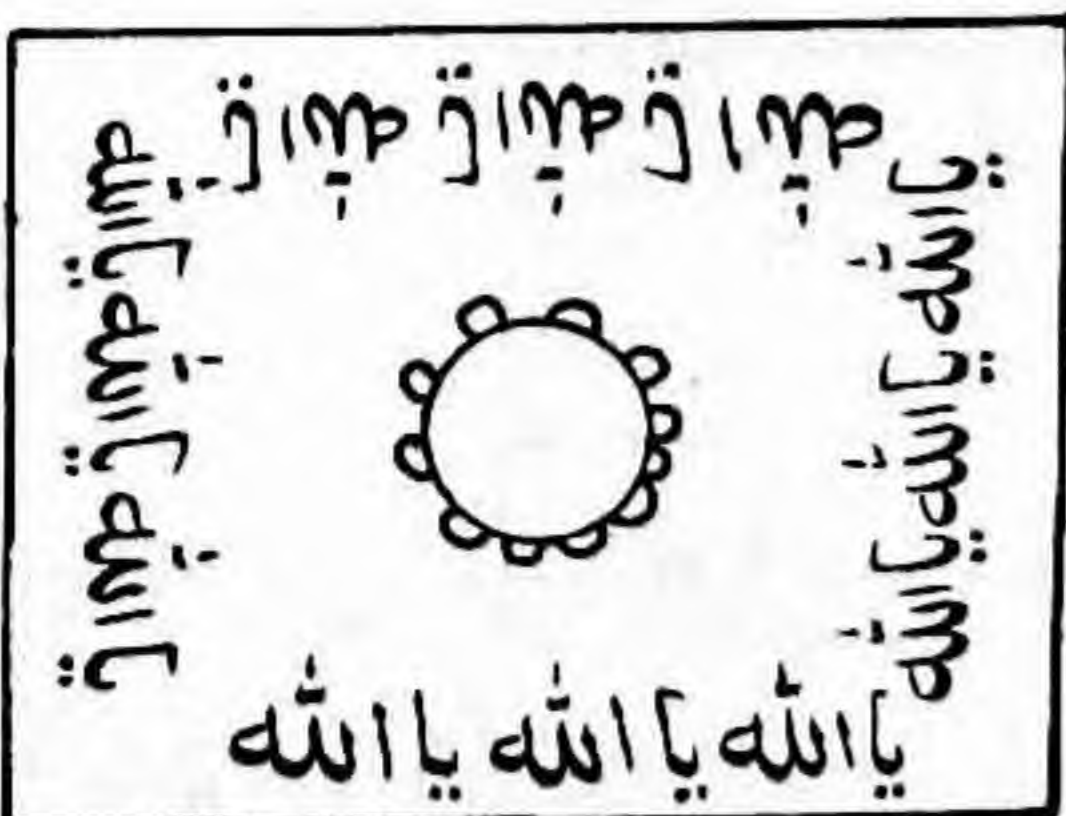 يا الله يا الله يا الله
يا الله يا الله يا الله
يا الله يا الله يا الله
يا الله يا الله يا الله